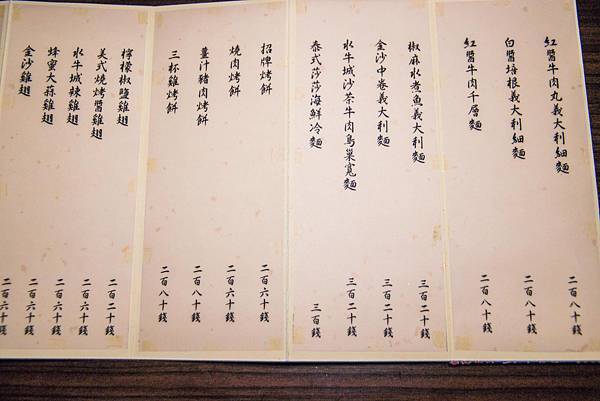 紅醬牛肉丸義大利細麵 二百八十錢
白醬培根義大利細麵 二百八十錢
紅醬牛肉千層麵 二百八十錢
椒麻水煮魚義大利麵 三百二十錢
金沙中卷義大利麵 三百二十錢
水牛城沙茶牛肉鳥巢寬麵 三百二十錢
泰式莎莎海鮮冷麵 三百錢
招牌烤餅 二百六十錢
燒肉烤餅 二百六十錢
薑汁豬肉烤餅 二百八十錢
三杯雞烤餅 二百八十錢
檸檬椒鹽雞翅 二百二十錢
美式燒烤醬雞翅 二百六十錢
水牛城辣雞翅 二百六十錢
蜂蜜大蒜雞翅 二百六十錢
金沙雞翅 二百六十錢